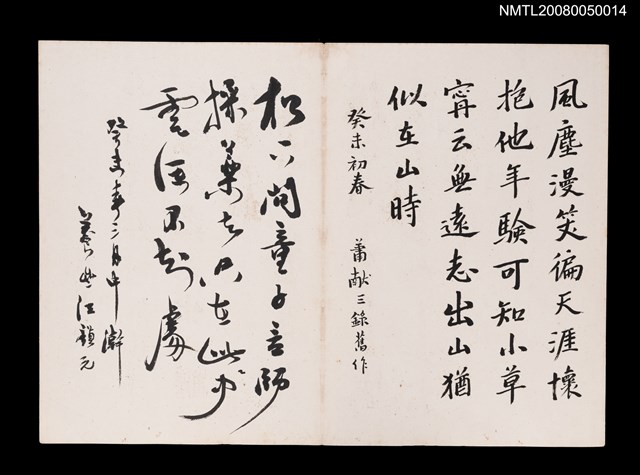 NMTL20080050014
風塵漫笑徧天涯懷
抱他年驗可知小草
寧云無遠志出山猶
似在山時
癸未初春 蕭献三錄舊作
松下問童子言師
採藥去只在此山
雲深不知處
癸未年三月中澣
江鎖元